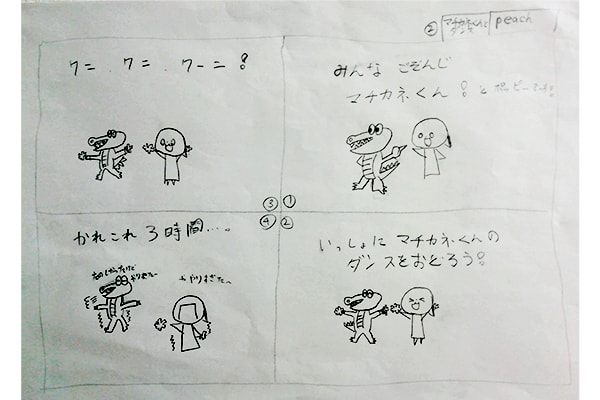 ② マチカネくんと peach
ダンス
①
みんな ごぞんじ
マチカネくん！と
②
いっしょに マチカネくんの
ダンスをおどろう！
③
ワニ ワニ ワーニ！
④
かれこれ 3時間…。
やりすぎた